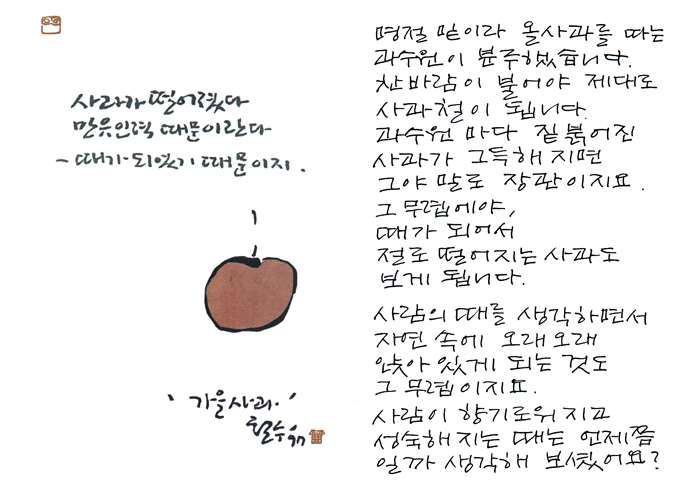 사과가 떨어졌다
만유인력 때문이란다
- 때가 되었기 때문이지.
' 가을사과. '
철수 97
명절 밑이라 올사과를 따는
과수원이 분주했습니다.
찬바람이 불어야 제대로
사과철이 됩니다.
과수원 마다 짙붉어진
사과가 그득해지면
그야 말로 장관이지요.
그 무렵에야,
때가 되어서
절로 떨어지는 사과도
보게 됩니다.
사람의 때를 생각하면서
자연 속에 오래오래
앉아 있게 되는 것도
그 무렵이지요.
사람이 향기로워지고
성숙해지는 때는 언제쯤
일까 생각해 보셨어요?